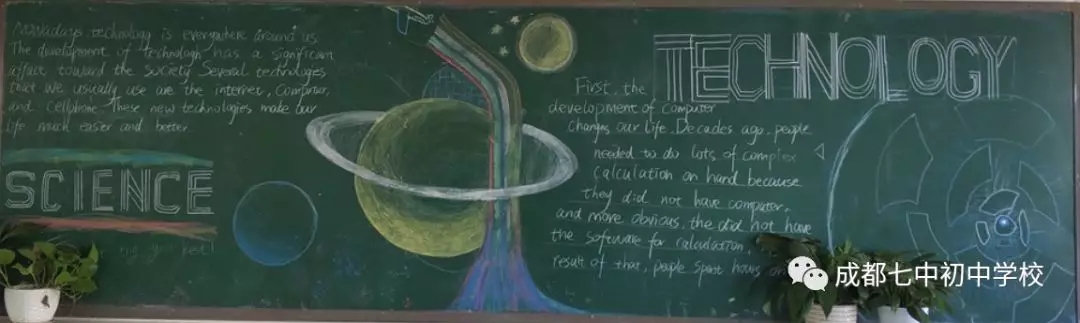 Nowadays technology is everywhere around us.
The development of technologh has a significant
affect toward the society Several technologies
that we usually use are the internet, Computer,
and cellphone These new technologies make our
life much easier and better
SCIENCE
TECHNOLOGY
First, the
development of computer
changes our life. Decades ago, people
needed to do lots of complex
calculation on hand because
they did not have computer,
and more obvious, the did not have
the software for calculation
result of that, people spent hours
成都七中初中学校